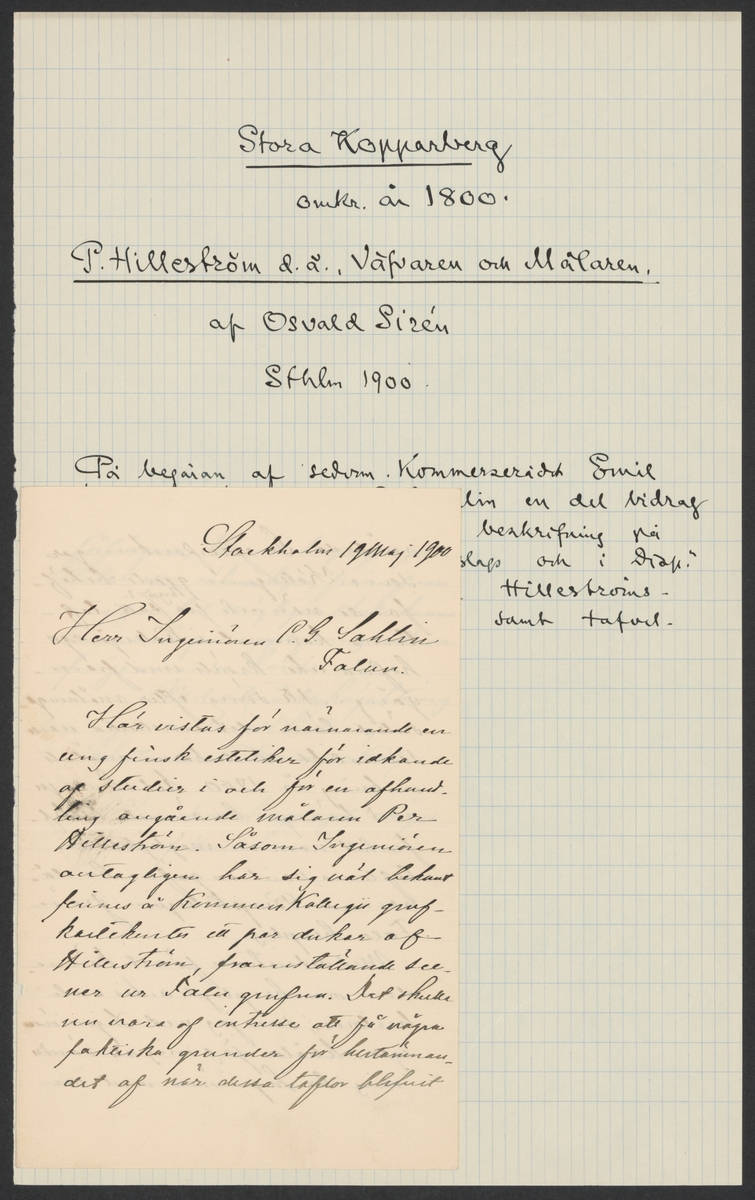 Stora Kopparberg
omkr. år 1800.
P. Hilleström d. ä., Väfvaren och Målaren.
af Osvald Sirén
Sthlm 1900.
På begäran af sederm. Kommerserådet Emil
lin en del bidrag
beskrifning på
slags och i Disp:
Hilleströms-
samt tafvel-
Stockholm 19 Maj 1900
Herr Ingeniören C. G. Sahlin
Falun.
Här vistas för närvarande en
ung finsk estetiker för idkande
af studier i och för en afhand-
ling angående målaren Per
Hilleström. Såsom Ingeniören
antagligen har sig väl bekant
finnes å Kommers Kollegii gruf-
kartekontor ett par dukar af
Hilleström, framställande sce-
ner ur Falu grufva. Det skulle
nu vara af intresse att få några
faktiska grunder för bestämman-
det af när dessa taflor blifvit